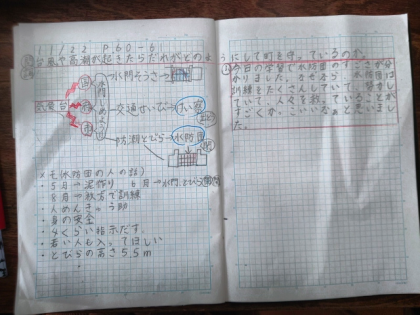 11/22 P.60-61
台風や高潮が起きたらだれがどのようにして町を守っているのか。
国
県
市
気象台
水門そうさ
交通せいび
けい察
防潮とびら
水防団
メモ(水防団の人の話)
・5月→泥作り 6月→水門、とびら
・8月→秋方で訓練
・身の安全
・4くらい指示だす。
・若い人も入ってほしい
・とびらの高さ5.5m
今日の学習で水防団のすごさが分かりました。なぜなら、水防団は訓練をたくさんしていて、努力していて、人々を救っていることがすごくかっこいいなぁと思いました。